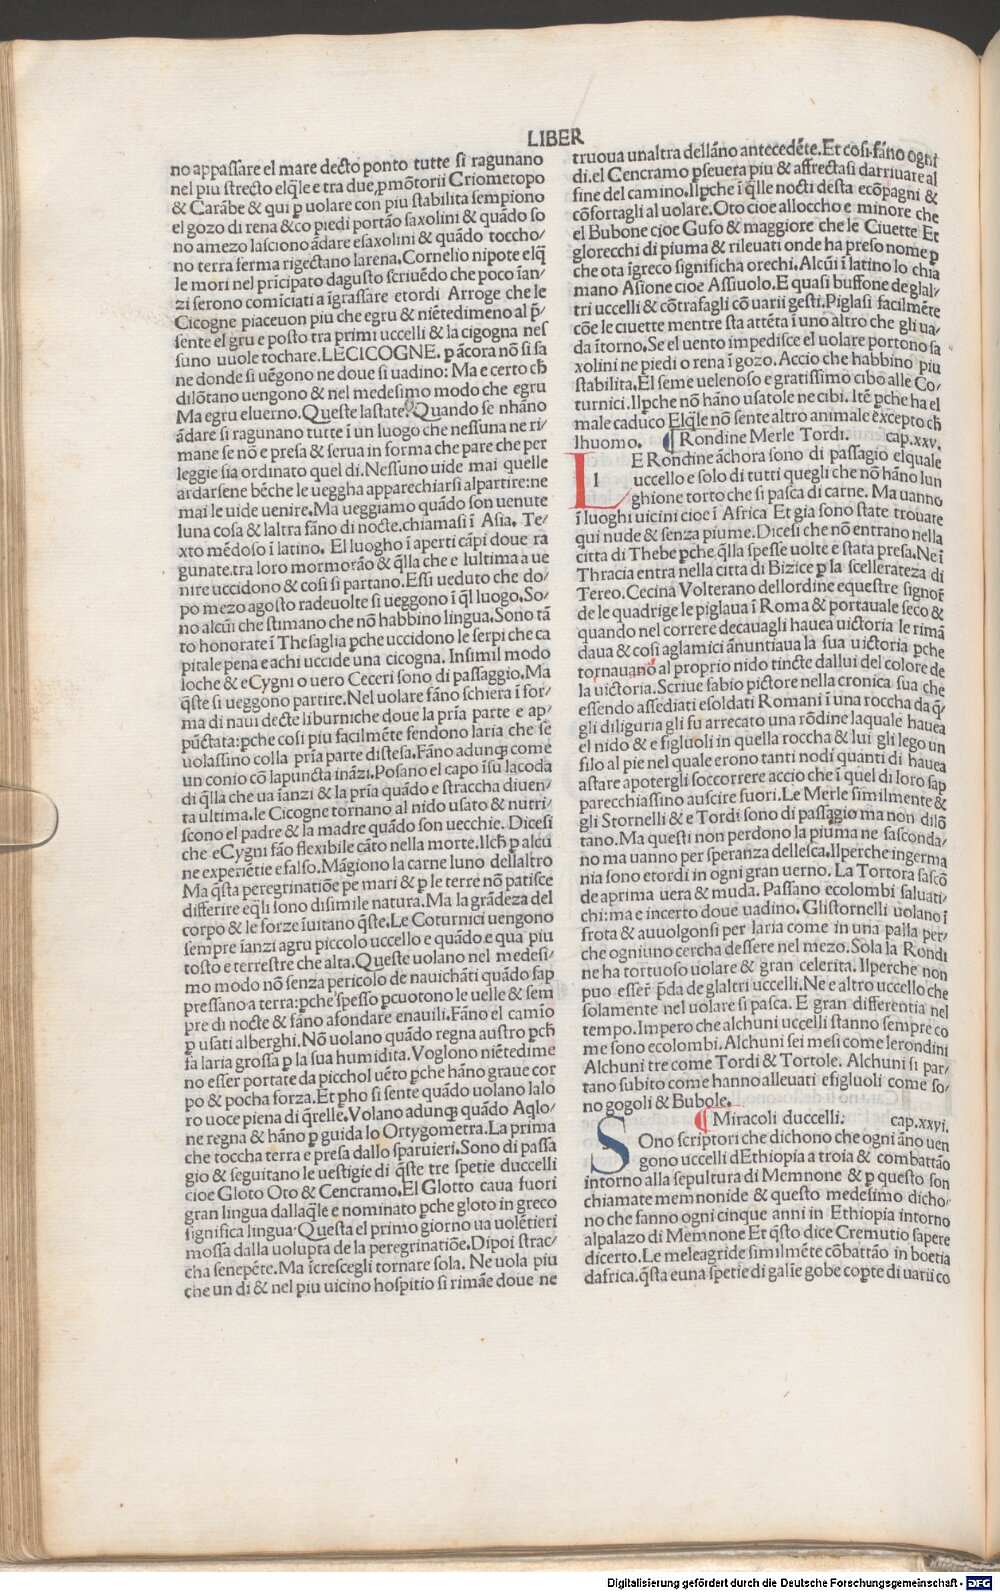 LIBER
no appaſſare el mare decto ponto tutte ſi ragunano
nel piu ſtrecto elq̃le e tra due ꝓmõtorii Criometopo
& Carãbe & qui ꝑ uolare con piu ſtabilita ſempiono
el gozo di rena & co piedi portão ſaxolini & quãdo ſo
no amezo laſciono ãdare eſaxolini & quãdo toccho/
no terra ferma rigectano larena. Cornelio nipote elq̃
le mori nel prĩcipato daguſto ſcriuẽdo che poco ĩan/
zi ſerono comĩciati a ĩgraſſare etordi Arroge che le
Cicogne piaceuon piu che egru & niẽtedimeno al p̃/
ſente el gru e poſto tra primi uccelli & la cigogna neſ
ſuno uuole tochare. LECICOGNE. ꝑ ãcora nõ ſi ſa
ne donde ſi uẽgono ne doue ſi uadino: Ma e certo ch̃
dilõtano uengono & nel medeſimo modo che egru
Ma egru eluerno. Queſte laſtate. Quando ſe nhãno
ãdare ſi ragunano tutte ĩ un luogo che neſſuna ne ri/
mane ſe nõ e preſa & ſerua in forma che pare che per
leggie ſia ordinato quel di. Neſſuno uide mai quelle
ardarſene bẽche le ueggha apparechiarſi alpartire: ne
mai le uide uenire. Ma ueggiamo quãdo ſon uenute
luna coſa & laltra fãno di nocte. chiamaſi ĩ Aſia. Te/
xto mẽdoſo ĩ latino. El luogho ĩ aperti cãpi doue ra
gunate. tra loro mormorão & q̃lla che e lultima a ue
nire uccidono & coſi ſi partano. Eſſi ueduto che do/
po mezo agoſto radeuolte ſi ueggono ĩ q̃l luogo. So/
no alcũi che ſtimano che nõ habbino lingua. Sono tã
to honorate ĩ Theſaglia ꝑche uccidono le ſerpi che ca
pitale pena e achi uccide una cicogna. Inſimil modo
loche & eCygni o uero Ceceri ſono di paſſaggio. Ma
q̃ſte ſi ueggono partire. Nel uolare fãno ſchiera ĩ for/
ma di naui decte liburniche doue la prĩa parte e ap/
pũctata: ꝑche coſi piu facilmẽte fendono laria che ſe
uolaſſino colla prĩa parte diſteſa. Fãno adunq̃ come
un conio cõ lapuncta inãzi. Poſano el capo ĩſu lacoda
di q̃lla che ua ĩanzi & la prĩa quãdo e ſtraccha diuen/
ta ultima. le Cicogne tornano al nido uſato & nutri/
ſcono el padre & la madre quãdo ſon uecchie. Diceſi
che eCygni fão flexibile cãto nella morte. Ilch̃ ꝑ alcũ
ne experiẽtie e falſo. Mãgiono la carne luno dellaltro
Ma q̃ſta peregrinatiõe pe mari & ꝑ le terre nõ patiſce
differire eq̃li ſono diſimile natura. Ma la grãdeza del
corpo & le forze ĩuitano q̃ſte. Le Coturnici uengono
ſempre ĩanzi agru piccolo uccello e quãdo e qua piu
toſto e terreſtre che alta. Queſte uolano nel medeſi/
mo modo nõ ſenza pericolo de nauichãti quãdo ſap
preſſano a terra: ꝑche ſpeſſo ꝑcuotono le uelle & ſem
pre di nocte & fãno afondare enauili. Fãno el camĩo
ꝑ uſati alberghi. Nõ uolano quãdo regna auſtro ꝑch̃
fa laria groſſa ꝑ la ſua humidita. Voglono niẽtedime
no eſſer portate da picchol uẽto ꝑche hãno graue cor
po & pocha forza. Et ꝑho ſi ſente quãdo uolano lalo
ro uoce piena di q̃relle. Volano adunq̃ quãdo Aq̃lo/
ne regna & hãno ꝑ guida lo Ortygometra. La prima
che toccha terra e preſa dallo ſparuieri. Sono di paſſa
gio & ſeguitano le ueſtigie di q̃ſte tre ſpetie duccelli
cioe Gloto Oto & Cencramo. El Glotto caua fuori
gran lingua dallaq̃le e nominato ꝑche gloto in greco
ſignifica lingua Queſta el primo giorno ua uolẽtieri
moſſa dalla uolupta de la peregrinatiõe. Dipoi ſtrac/
cha ſenepẽte. Ma ĩcreſcegli tornare ſola. Ne uola piu
che un di & nel piu uicino hoſpitio ſi rimãe doue ne
truoua unaltra dellãno antecedẽte. Et coſi fãno ogni
di. el Cencramo ꝑſeuera piu & affrectaſi darriuare al
fine del camino. Ilꝑche ĩ q̃lle nocti deſta ecõpagni &
cõfortagli al uolare. Oto cioe alloccho e minore che
el Bubone cioe Gufo & maggiore che le Ciuette Et
glorecchi di piuma & rileuati onde ha preſo nome ꝑ
che ota ĩgreco ſignificha orechi. Alcũi ĩ latino lo chia
mano Aſione cioe Aſſiuolo. E quaſi buffone de glal/
tri uccelli & cõtrafagli cõ uarii geſti. Piglaſi facilmẽte
cõe le ciuette mentre ſta attẽta ĩ uno altro che gli ua/
da ĩtorno. Se el uento impediſce el uolare portono ſa
xolini ne piedi o rena ĩ gozo. Accio che habbino piu
ſtabilita. El ſeme uelenoſo e gratiſſimo cibo alle Co/
turnici. Ilꝑche nõ hãno uſatole ne cibi. Itẽ ꝑche ha el
male caduco Elq̃le nõ ſente altro animale excepto ch̃
lhuomo. ¶ Rondine Merle Tordi. cap.xxv.
LE Rondine ãchora ſono di paſſagio elquale
uccello e ſolo di tutti quegli che nõ hãno lun
ghione torto che ſi paſca di carne. Ma uanno
ĩ luoghi uicini cioe ĩ Africa Et gia ſono ſtate trouate
qui nude & ſenza piume. Diceſi che nõ entrano nella
citta di Thebe ꝑche q̃lla ſpeſſe uolte e ſtata preſa. Ne ĩ
Thracia entra nella citta di Bizice ꝑ la ſcellerateza di
Tereo. Cecina Volterano dellordine equeſtre ſignor̃
de le quadrige le piglaua ĩ Roma & portauale ſeco &
quando nel correre decauagli hauea uictoria le rimã
daua & coſi aglamici ãnuntiaua la ſua uictoria ꝑche
tornauano al proprio nido tincte dallui del colore de
la uictoria. Scriue fabio pictore nella cronica ſua che
eſſendo aſſediati eſoldati Romani ĩ una roccha da q̃/
gli diliguria gli fu arrecato una rõdine laquale hauea
el nido & e figluoli in quella roccha & lui gli lego un
filo al pie nel quale erono tanti nodi quanti di hauea
aſtare apotergli ſoccorrere accio che ĩ quel di loro ſap
parecchiaſſino auſcire fuori. Le Merle ſimilmente &
gli Stornelli & e Tordi ſono di paſſagio ma non dilõ
tano. Ma queſti non perdono la piuma ne ſaſconda/
no ma uanno per ſperanza delleſca. Ilperche ingerma
nia ſono etordi in ogni gran uerno. La Tortora ſaſcõ
de aprima uera & muda. Paſſano ecolombi ſaluati/
chi: ma e incerto doue uadino. Gliſtornelli uolano ĩ
frota & auuolgonſi per laria come in una palla per/
che ogniuno cercha deſſere nel mezo. Sola la Rondi
ne ha tortuoſo uolare & gran celerita. Ilperche non
puo eſſer̃ p̃da de glaltri uccelli. Ne e altro uccello che
ſolamente nel uolare ſi paſca. E gran differentia nel
tempo. Impero che alchuni uccelli ſtanno ſempre co
me ſono ecolombi. Alchuni ſei meſi come lerondini
Alchuni tre come Tordi & Tortole. Alchuni ſi par/
tano ſubito come hanno alleuati efigluoli come ſo/
no gogoli & Bubole.
¶ Miracoli duccelli. cap.xxvi.
SOno ſcriptori che dichono che ogni ãno uen
gono uccelli dEthiopia a troia & combattão
intorno alla ſepultura di Memnone & ꝑ queſto ſon
chiamate memnonide & queſto medeſimo dicho/
no che fanno ogni cinque anni in Ethiopia intorno
alpalazo di Memnone Et q̃ſto dice Cremutio ſapere
dicerto. Le meleagride ſimilmẽte cõbattão in boetia
dafrica. q̃ſta euna ſpetie di galĩe gobe coꝑte di uarii co
Digitalisierung gefördert durch die Deutsche Forschungsgemeinschaft - DFG